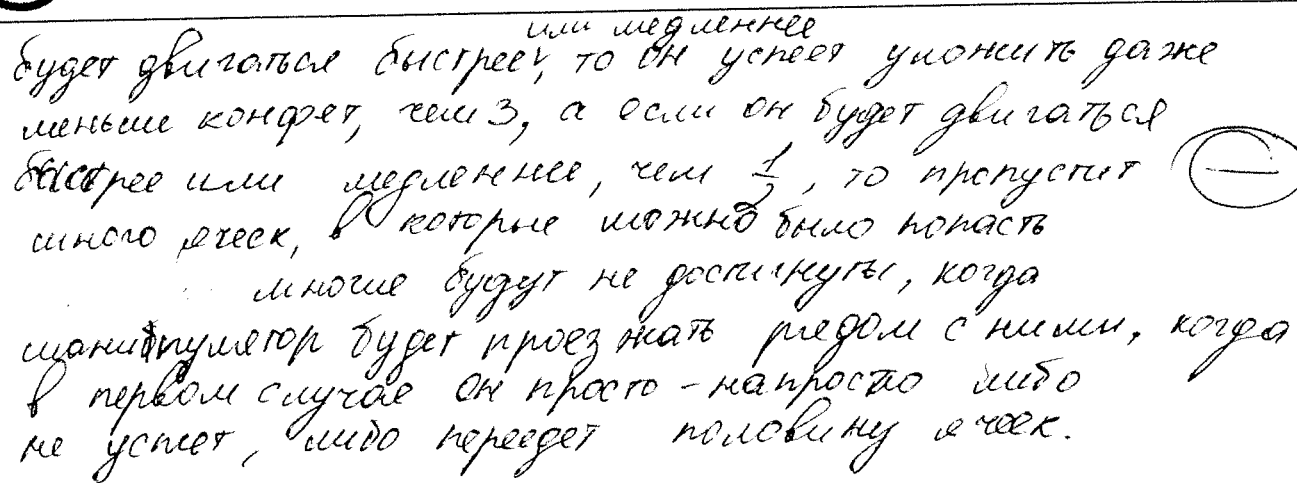 или медленнее
будет двигаться быстрее, то он успеет уложить даже
меньше конфет, чем 3, а если он будет двигаться
быстрее или медленнее, чем 1/2, то пропустит
много ячеек, в которые можно было попасть
многие будут не достигнуты, когда
манипулятор будет проезжать рядом с ними, когда
в первом случае он просто-напросто либо
не успеет, либо переедет половину ячеек.